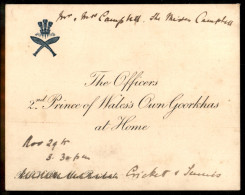 Mr & Mrs Campbell. The Misses Campbell
The Officers
2nd Prince of Wales's Own Goorkhas
at Home
Nov 29th
3.30 p.m
Cricket & Tennis